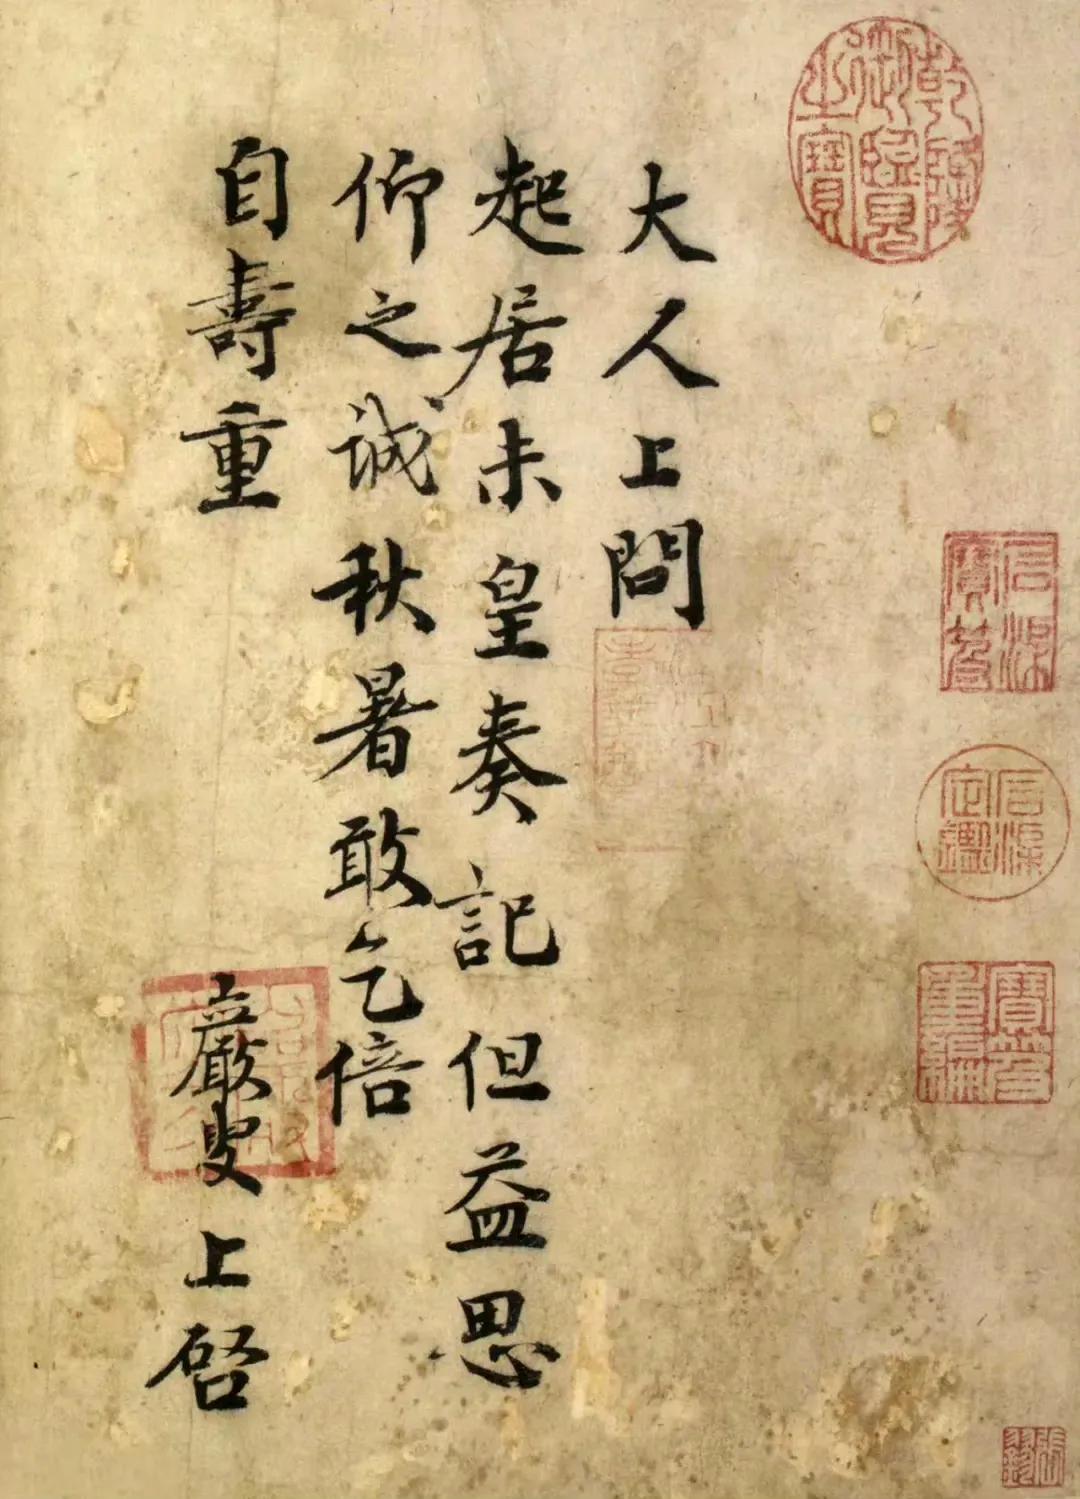 大人上問
起居未皇奏記但益思
仰之誠秋暑敢乞倍
自壽重
嚴叟上啓
乾隆御覽之寶
石渠寶笈
石渠定鑑
寶笈重編